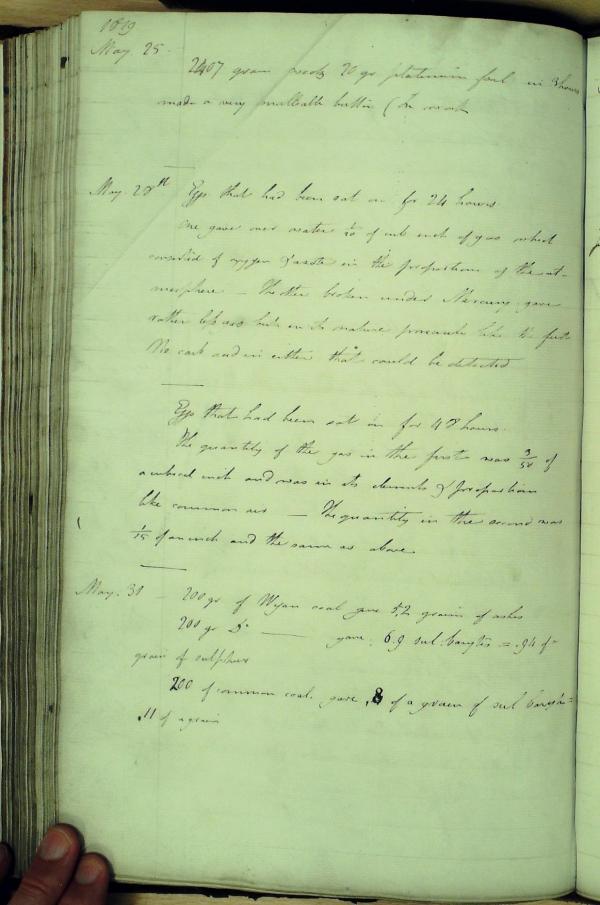 1819
May 25.
2407 grain 20 gr platinum foil in 3 hours
made a very malleable button
May 28th Eggs that had been sat on for 24 hours
One gave over water 1/20 of cub inch of gas which
consisted of oxygen & azote in the proportion of the at-
mosphere — The other broken under Mercury gave
rather less air but in its nature precisely like the first
No carb acid in either that could be detected
Eggs that had been sat on for 48 hours.
The quantity of the gas in the first was 3/50 of
a cubical inch and was in its elements & proportion
like common air — The quantity in the second was
1/15 of an inch and the same as above
May. 31 — 200 gr of coal gave 5.2 grains of ashes
200 gr Do — gave 6.9 sul. barytes = .94 of a
grain of sulphur
200 of common coal. gave .8 of a grain of sul barytes =
.11 of a grain